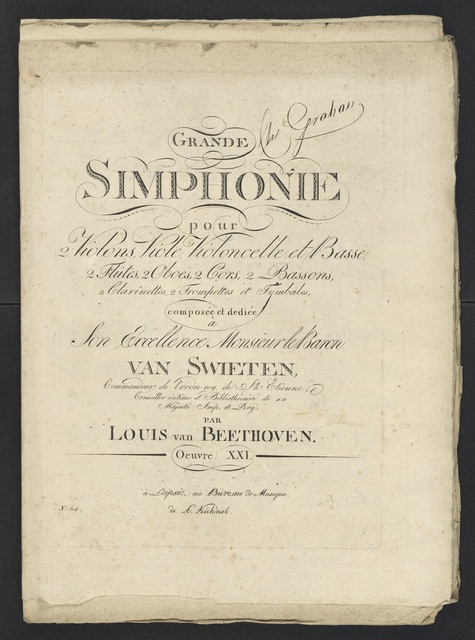 GRANDE
Ch Grahan
SIMPHONIE
pour
2 Violons, Viole, Violoncelle et Basse,
2 Flûtes, 2 Oboes, 2 Cors, 2 Bassons,
2 Clarinettes, 2 Trompettes et Tymbales,
composée et dediée
à
Son Excellence Monsieur le Baron
VAN SWIETEN,
Commandeur de l'ordre roy. de St. Etienne,
Conseiller intime et Bibliothécaire de sa
Majesté Imp. et Roy.
PAR
LOUIS van BEETHOVEN.
Oeuvre XXI.
à Leipsic, au Bureau de Musique
de A. Kühnel.
No. 64.